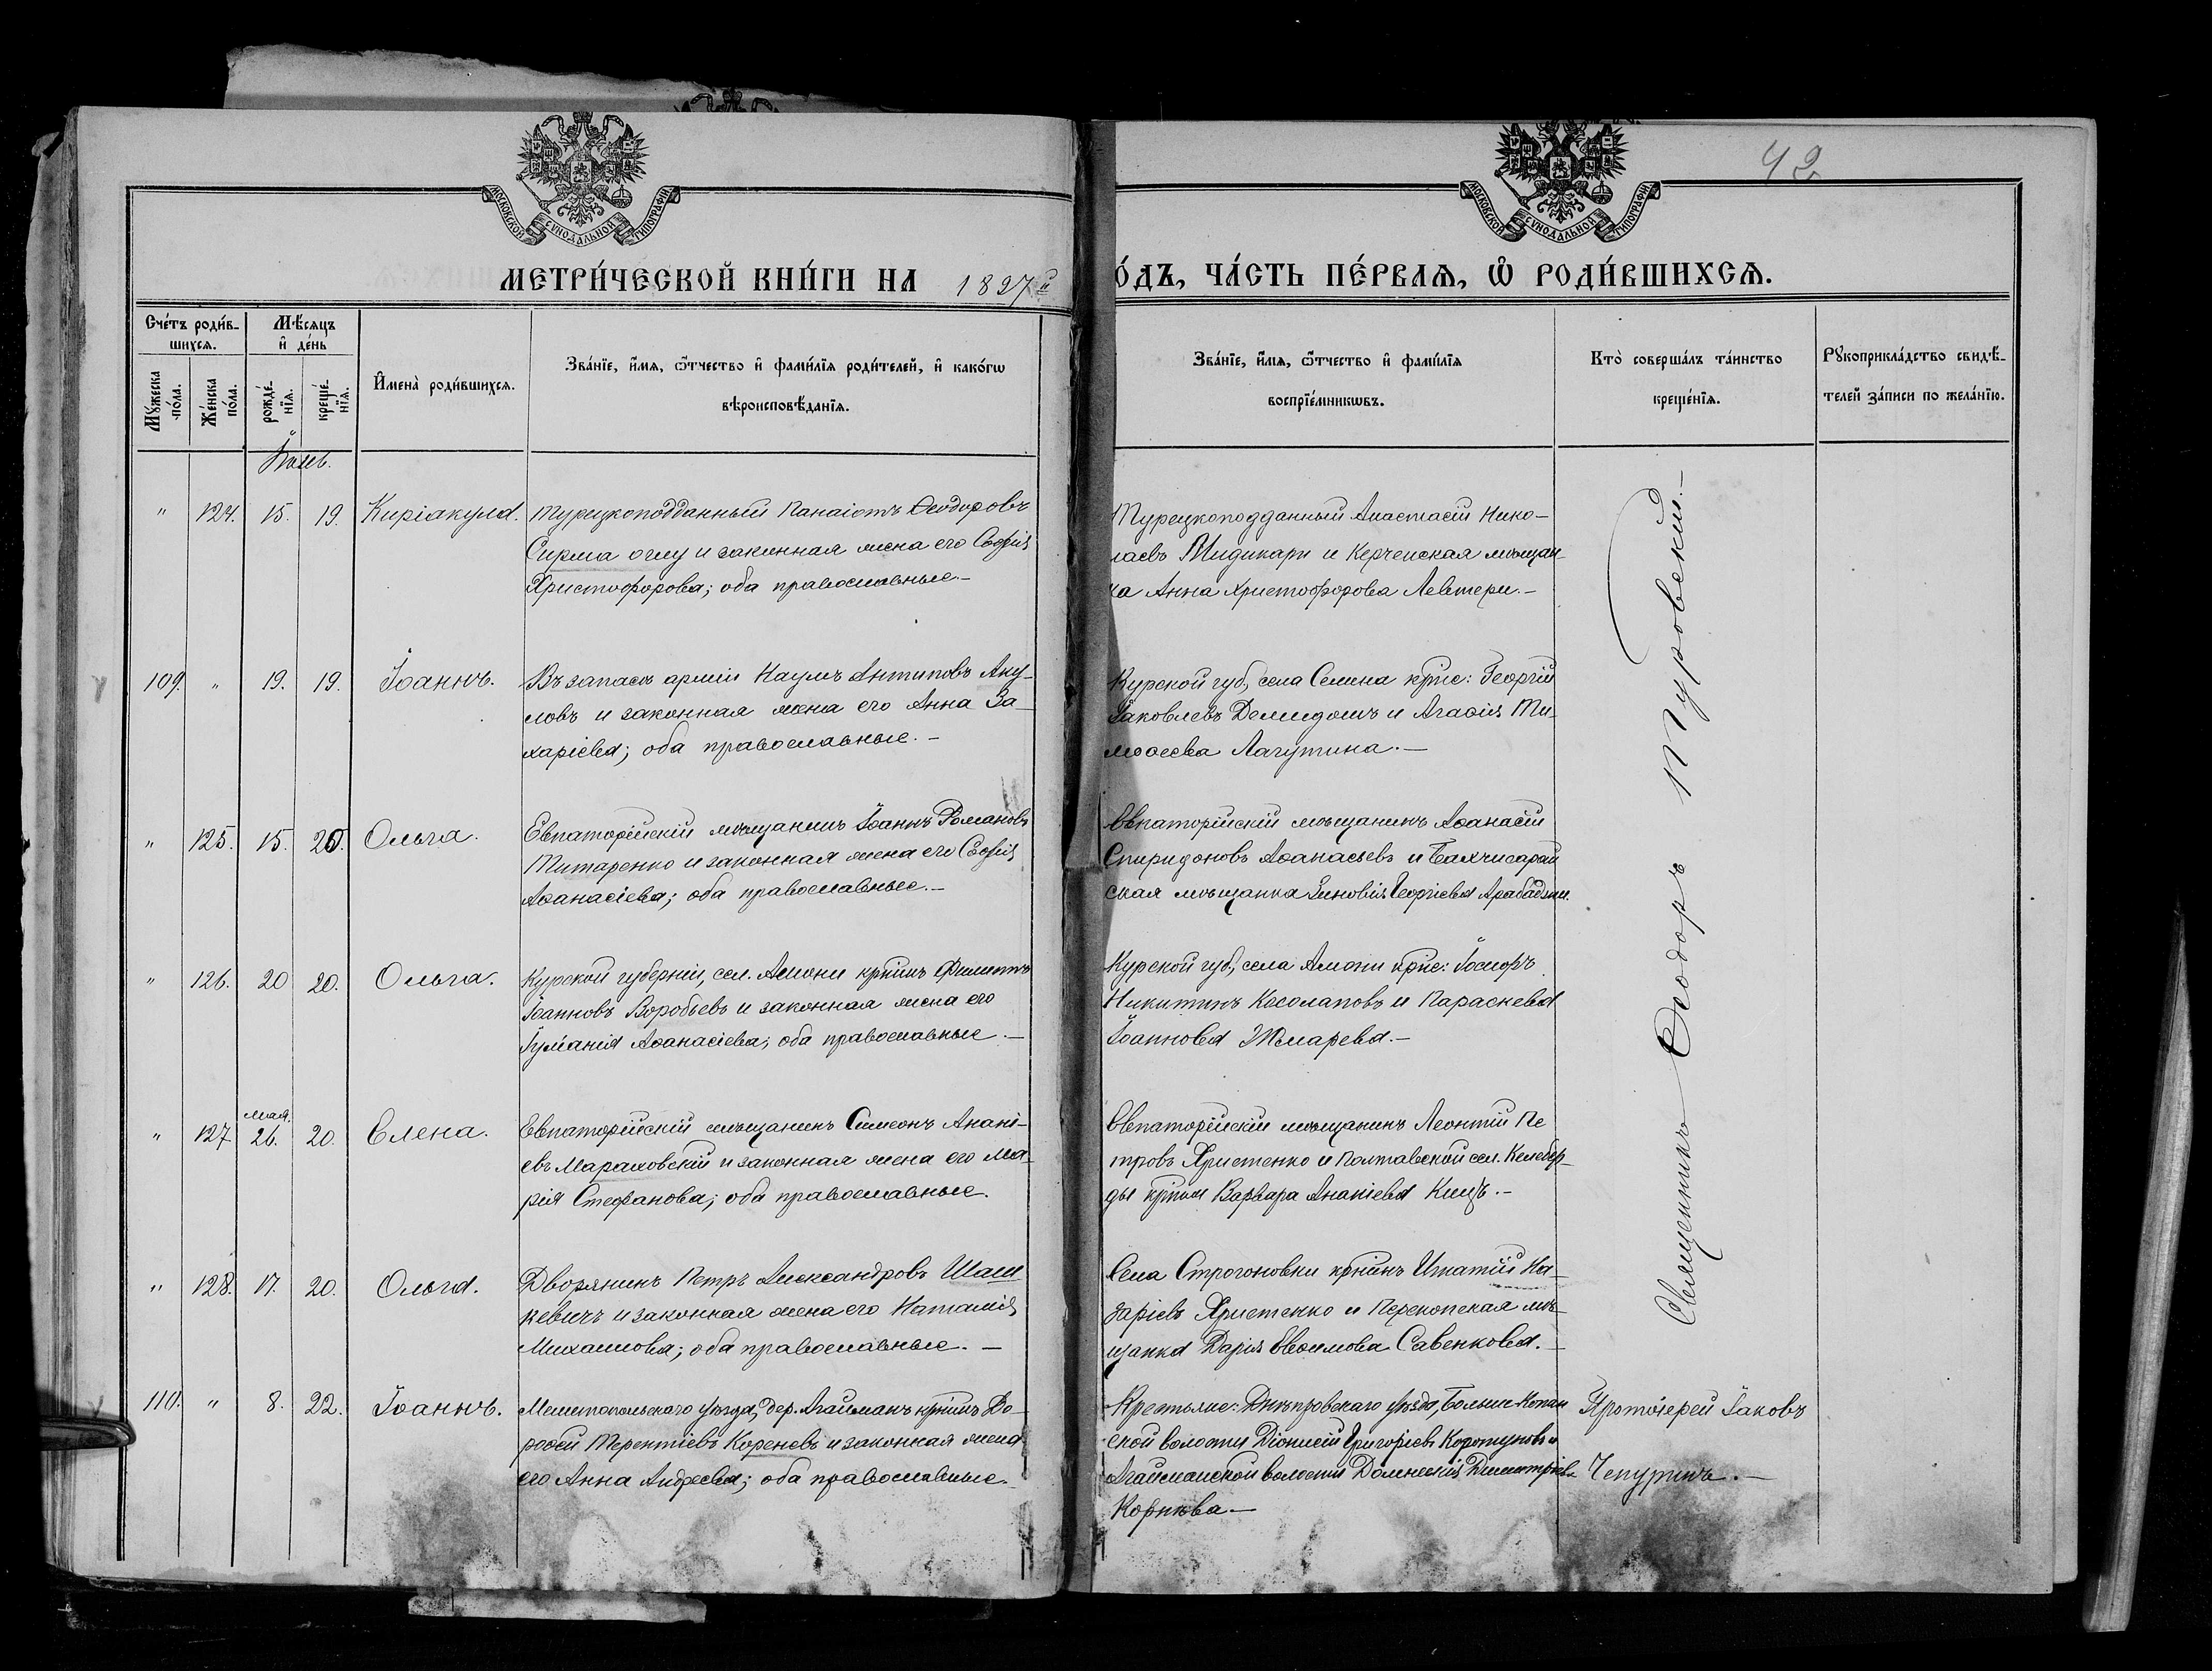 42
МОСКОВСКОЙ СѴНОДАЛЬНОЙ ТИПОГРАФІИ
МОСКОВСКОЙ СѴНОДАЛЬНОЙ ТИПОГРАФІИ
МЕТРИ́ЧЕСКОЙ КНИ́ГИ НА 1897й
О́ДЪ, ЧА́СТЬ ПЕ́РВАѦ, Ѡ҆ РОДИ́ВШИХСѦ.
Сче́тъ роди́в-
шихсѧ.
Мꙋ́жеска по́ла.
Же́нска по́ла.
Мѣ́сѧцъ
и҆ де́нь
рожде́-
нїѧ.
креще́-
нїѧ.
И҆мена̀ роди́вшихсѧ.
Зва́нїе, и҆́мѧ, ѻ҆́тчество и҆ фами́лїѧ роди́телей, и҆ како́гѡ
вѣроисповѣ́данїѧ.
Зва́нїе, и҆́мѧ, ѻ҆́тчество и҆ фами́лїѧ
воспрїе́мникѡвъ.
Кто̀ соверша́лъ та́инство
креще́нїѧ.
Рꙋкоприкла́дство свидѣ́-
телей за́писи по жела́нїю.
Іюнь.
" 124. 15. 19. Киріакула.
Турецкоподданный Панаіотъ Ѳеодоровъ
Сирма оглу и законная жена его Софія
Христофорова; оба православные.-
Турецкоподданный Анастасій Нико-
лаевъ Мидикари и Керченская мѣщан
ка Анна Христофорова Левтери.-
109. " 19. 19. Іоаннъ.
Въ запасѣ арміи Наумъ Антиповъ Аку-
ловъ и законная жена его Анна За-
харіева; оба православные.-
Курской губ., села Селина крне: Георгій
Іаковлевъ Демидовъ и Агаѳія Ти-
моѳеева Лагутина.-
" 125. 15. 20. Ольга.
Евпаторійскій мѣщанинъ Іоаннъ Романовъ
Титаренко и законная жена его Софія
Аѳанасіева; оба православные.-
Евпаторійскій мѣщанинъ Аѳанасій
Спиридоновъ Аѳанасьевъ и Бахчисарай
ская мѣщанка Зиновія Георгіева Арабаджи.
" 126. 20 20. Ольга.
Курской губерніи, сел. Амони крнинъ Филиппъ
Іоанновъ Воробьевъ и законная жена его
Іуліанія Аѳанасіева; оба православные.-
Курской губ., села Амони крне: Іосифъ
Никитинъ Косолаповъ и Параскева
Іоаннова Жмарева.-
мая.
" 127 26. 20. Елена.
Евпаторійскій мѣщанинъ Симеонъ Анані-
евъ Мараховскій и законная жена его Ма-
рія Стефанова; оба православные.
Евпаторійскій мѣщанинъ Леонтій Пе
тровъ Христенко и Полтавской сел. Келебер-
ды Варвара Ананіева
" 128. 17. 20. Ольга.
Дворянинъ Петръ Александровъ Шаш
кевичъ и законная жена его Наталія
Михаилова; оба православные.-
Села Строгоновки крнинъ Игнатій На-
заріевъ Христенко и Перекопская мѣ-
щанка Дарія Евѳимова Савенкова.-
Священникъ Ѳеодоръ Туровскій.-
110. " 8. 22. Іоаннъ.
Мелитопольскаго уѣзда, дер. Агайманъ крнинъ До-
роѳей Терентіевъ Кореневъ и законная жена
его Анна Андреева; оба православные.
Крестьяне: Днѣпровскаго уѣзда, Больше-Копан
ской волости Діонисій Григоріевъ Коротуновъ и
Агайманской волости Домникія Димитріева
Корнѣва.-
Протоіерей Іаковъ
Чепуринъ.-